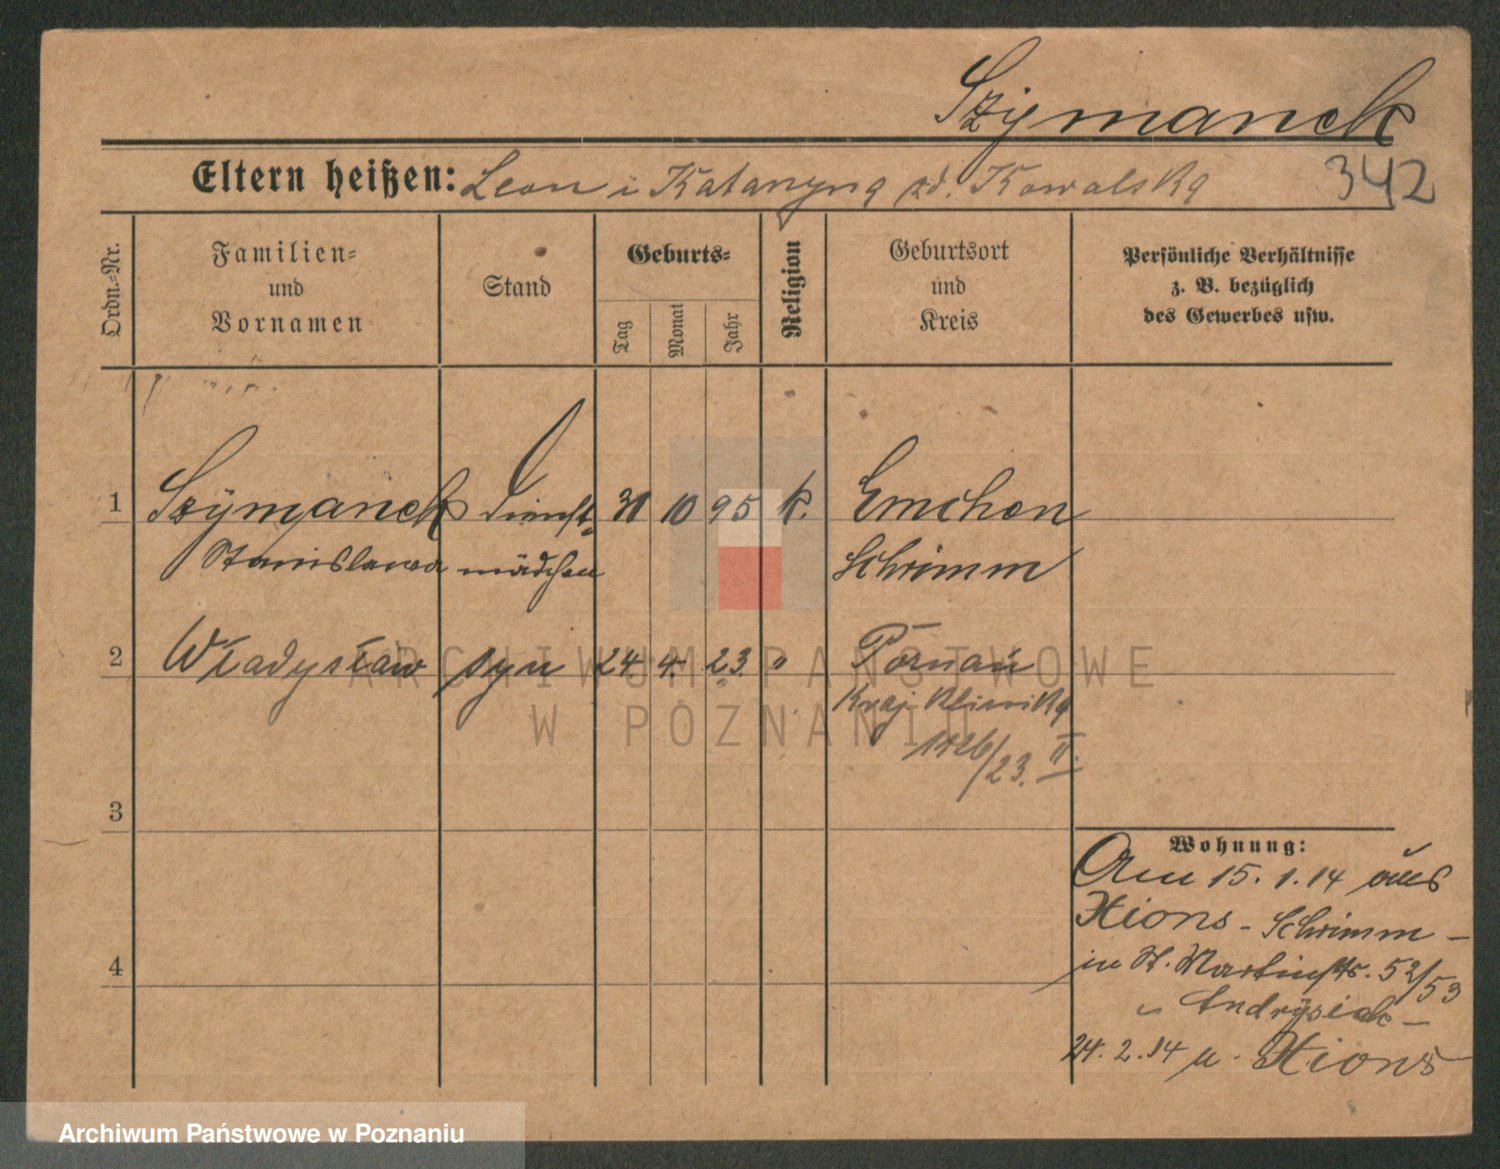 Szymanek
Eltern heißen: Leon i Katarzyna zd. Kowalska 342
Ordn.-Nr.
Familien-
und
Vornamen
Stand
Geburts-
Tag
Monat
Jahr
Religion
Geburtsort
und
Kreis
Persönliche Verhältnisse
z. B. bezüglich
des Gewerbes usw.
1 Szÿmanek Dienst- 31 10 95 k. Emchen
Stanislawa mädchen Schrimm
2 Władysław syn 24 4. 23. " Poznań
Kraj. Klinika
1426/23. II.
3
4
Wohnung:
Am 15. 1. 14 aus
Xions - Schrimm -
in St. Martinstr. 52/53
b Andrÿsiak -
24. 2. 14 n. Xions
ARCHIWUM PAŃSTWOWE
W POZNANIU
Archiwum Państwowe w Poznaniu